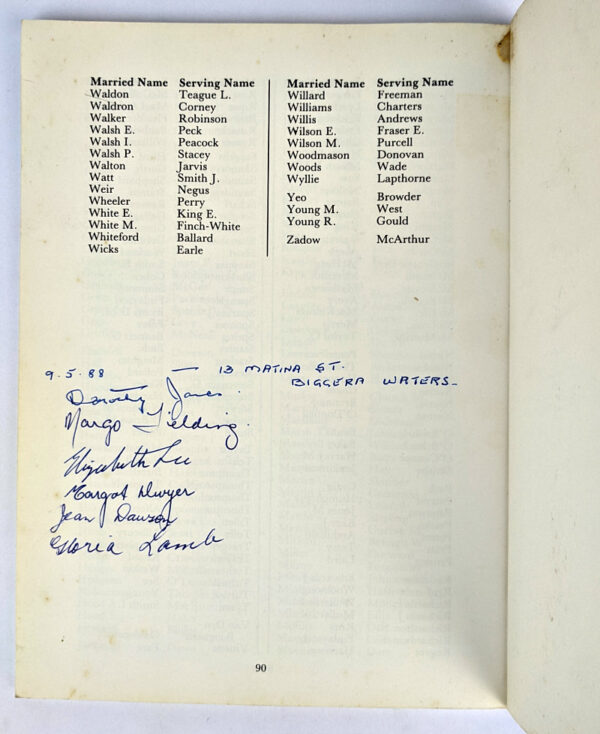 Married Name Serving Name
Waldon Teague L.
Waldron Corney
Walker Robinson
Walsh E. Peck
Walsh I. Peacock
Walsh P. Stacey
Walton Jarvis
Watt Smith J.
Weir Negus
Wheeler Perry
White E. King E.
White M. Finch-White
Whiteford Ballard
Wicks Earle
Married Name Serving Name
Willard Freeman
Williams Charters
Willis Andrews
Wilson E. Fraser E.
Wilson M. Purcell
Woodmason Donovan
Woods Wade
Wyllie Lapthorne
Yeo Browder
Young M. West
Young R. Gould
Zadow McArthur
9.5.88 — 13 MATINA ST.
BIGGERA WATERS_
Dorothy
Margo Fielding
Elizabeth Lee
Margot Dwyer
Jean Dawson
Gloria Lamb
90